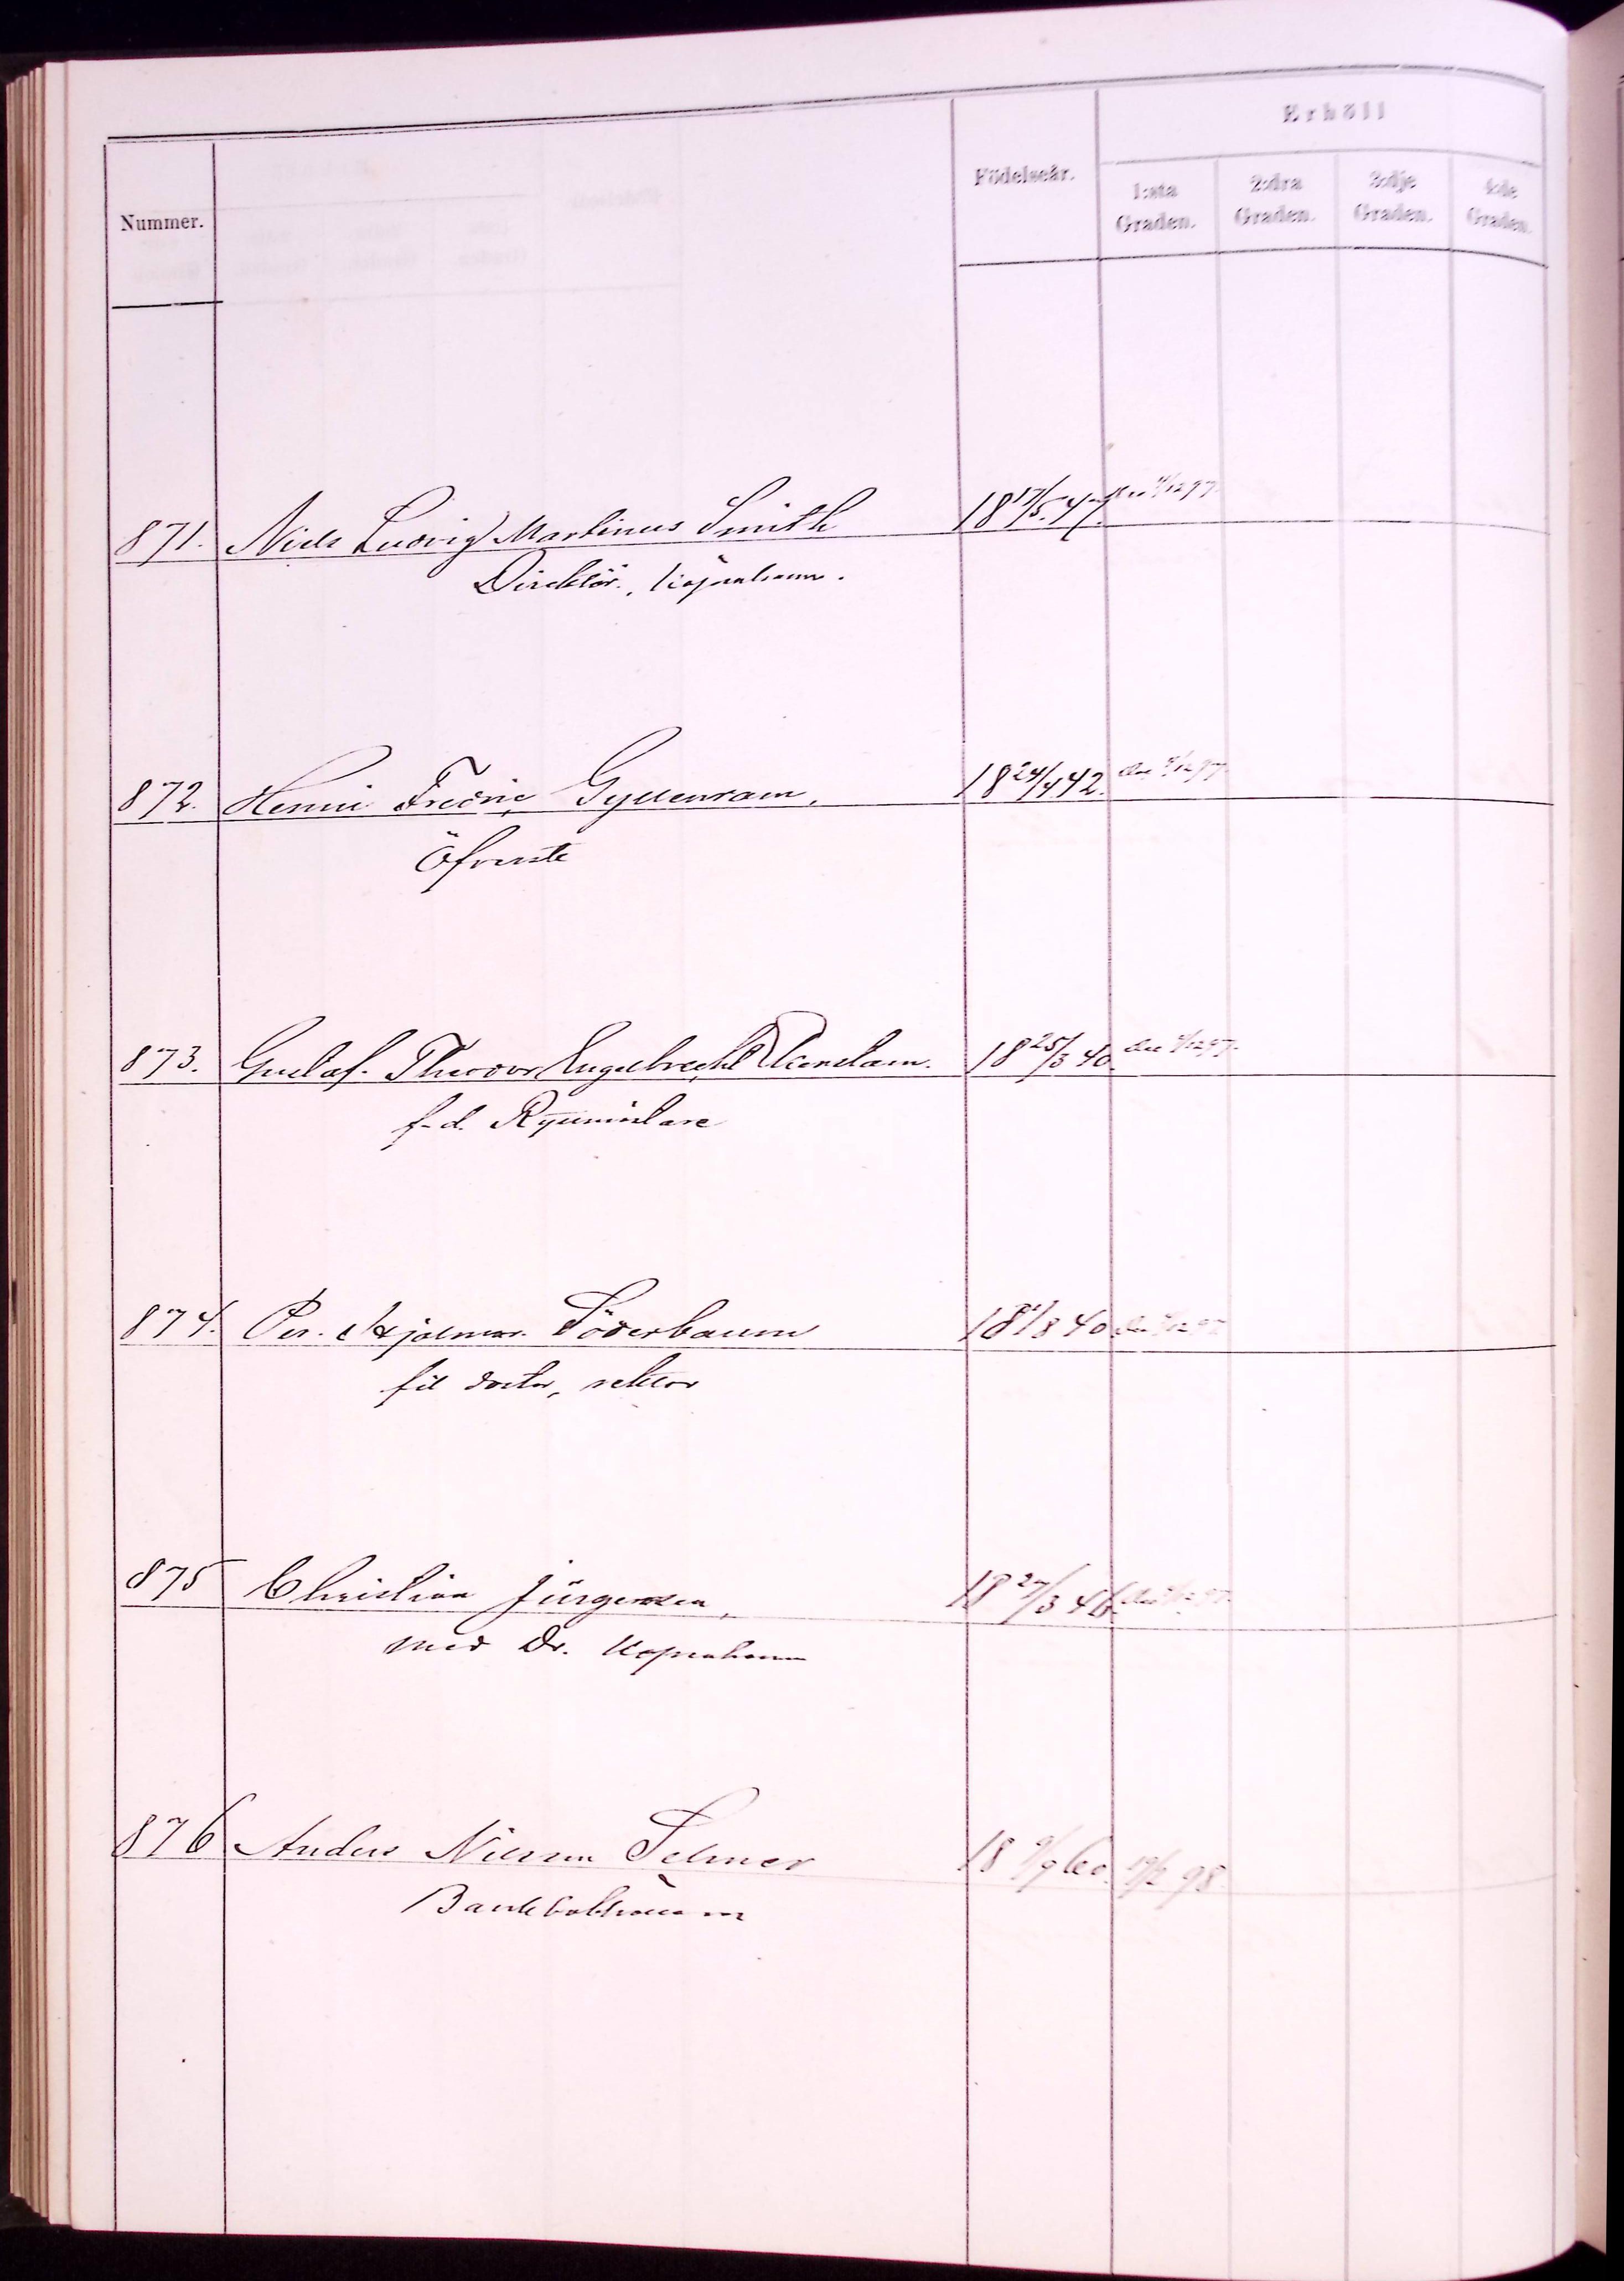 Erhöll
Nummer.
Födelseår.
1:sta Graden.
2:dra Graden.
3:dje Graden.
4:de Graden.
871. Niels Ludvig Martinus Smith 18 17/5. 47.
Direktör., Köpenhamn.
872. Henric Fredric Gyllenram. 18 24/4 42.
Öfverste
873. Gustaf Theodor Engelbrecht 18 25/3 40.
f. d. Ryttmästare
874. Per. Hjalmar. Söderbaum 40
fil doctor, rektor
875 Christian Jürgensen, 18 27/3 46.
med Dr. Köpenhamn
876 Anders Nilsson Selmer 18 9/9 60. 19/2 98.
Bankbokhållare